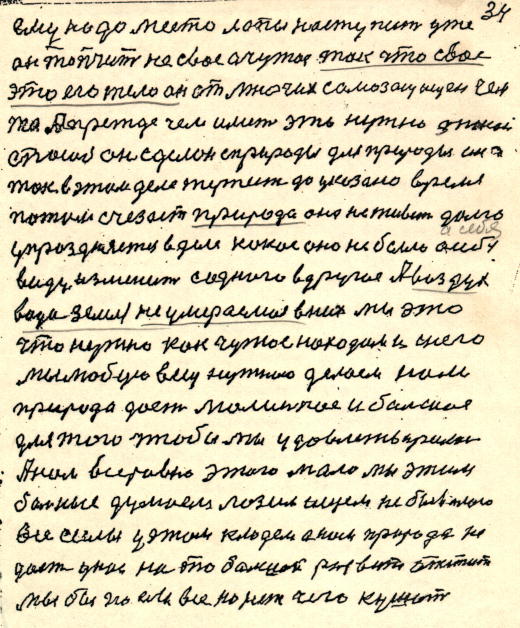 34
ему надо место лапы наступит уже
он топчит не свое а чужое так что свое
это его тело он от многих самозащищен чем
та А прежде чем иметь это нужно
способ он сделон с природы для природы он а
так в этом деле живет до указано время
потом счезает природа она не живет долго
упраздняется в деле какое оно не было
а себя
виду изменит с одного в другое А воздух
вода земля не умераемая в них мы это
что нужно как чужое находим и с него
мы любую вещ нужную делаем нам
природа дает малинкое и балшое
для того чтобы мы удовлетваряли
А нам всеравно этого мало мы этим
балные думаем лазим ищем не бывалого
все силы у этом кладем а нам природа не
дает у нас на то
мы бы поели все на реж чего кушают